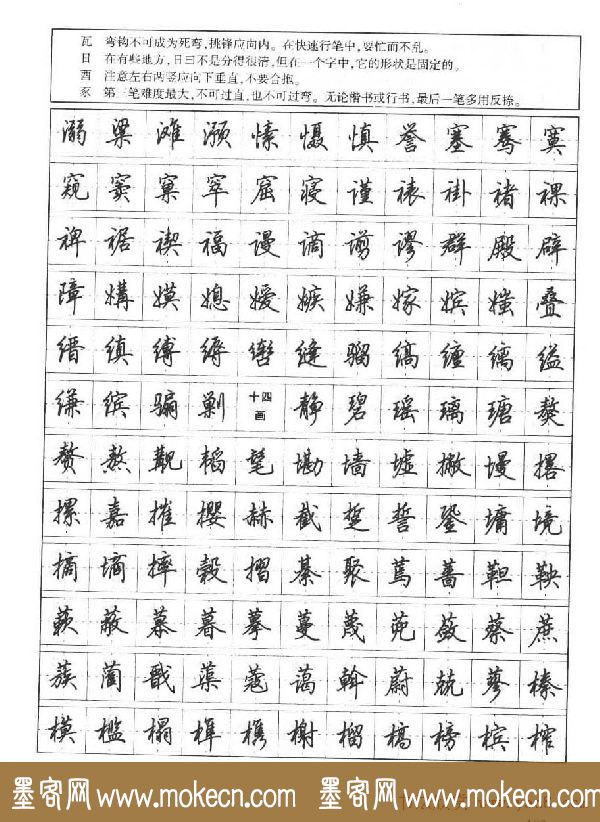 瓦 弯钩不可成为死弯,挑锋应向内。在快速行笔中,要忙而不乱。
日 在有些地方,日曰不是分得很清,但在一个字中,它的形状是固定的。
西 注意左右两竖应向下垂直,不要合抱。
家 第二笔难度最大,不可过直,也不可过弯。无论楷书或行书,最后一笔多用反捺。
溺 粱 滩 灏 愫 慑 慎 誉 塞 骞 寞
窥 窦 窠 窣 窟 寝 谨 裱 褂 褚 裸
裨 裾 禊 福 谩 谪 谫 谬 群 殿 辟
障 媾 嫫 媳 嫒 嫉 嫌 嫁 嫔 媸 叠
缙 缜 缚 缛 辔 缝 骝 缟 缠 缡 缢
缣 缤 骟 剿 十四画 静 碧 瑶 璃 瑭 獒
赘 熬 觏 韬 髦 墈 墙 墟 撇 墁 撂
摞 嘉 摧 樱 赫 截 踅 誓 銎 墉 境
摘 墒 摔 毂 摺 綦 聚 茑 蔷 靼 鞅
蔌 蔽 慕 暮 摹 蔓 蔑 蔸 蔹 蔡 蔗
蔟 蔺 戬 蕖 蔻 蔼 斡 蔚 兢 蓼 榛
模 槛 榻 榫 槜 榭 榴 槁 榜 槟 榨
墨客网 www.mokecn.com 墨客网 www.mokecn.com